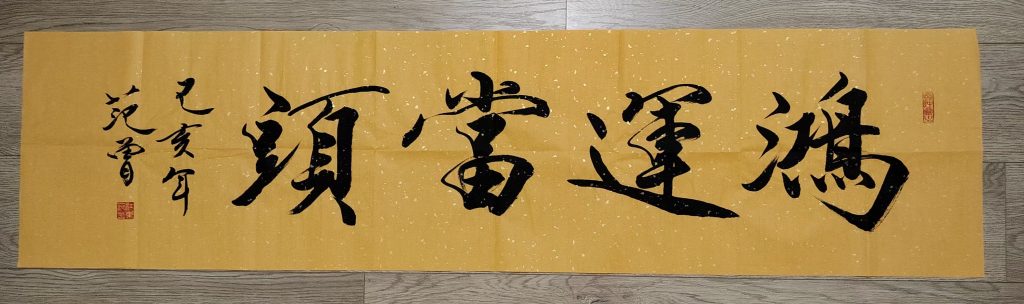 鴻運當頭
己亥年
范曾